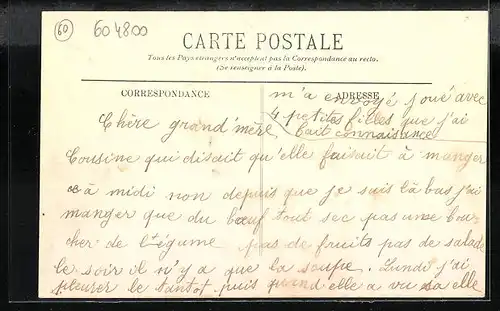 60
604800
CARTE POSTALE
Tous les Pays étrangers n'acceptent pas la Correspondance au recto.
(Se renseigner à la Poste).
CORRESPONDANCE
ADRESSE
m'a envoyé joué avec
4 petites filles que j'ai
fait connaisance
Chère grand'mère
Cousine qui disait qu'elle faisait à manger
à midi non depuis que je suis là bas j'ai
manger que du bœuf tout sec pas une bou
cher de légume pas de fruits pas de salade
le soir il n'y a que la soupe. Lundi j'ai
pleurer le tantot puis quand elle a vu sa elle